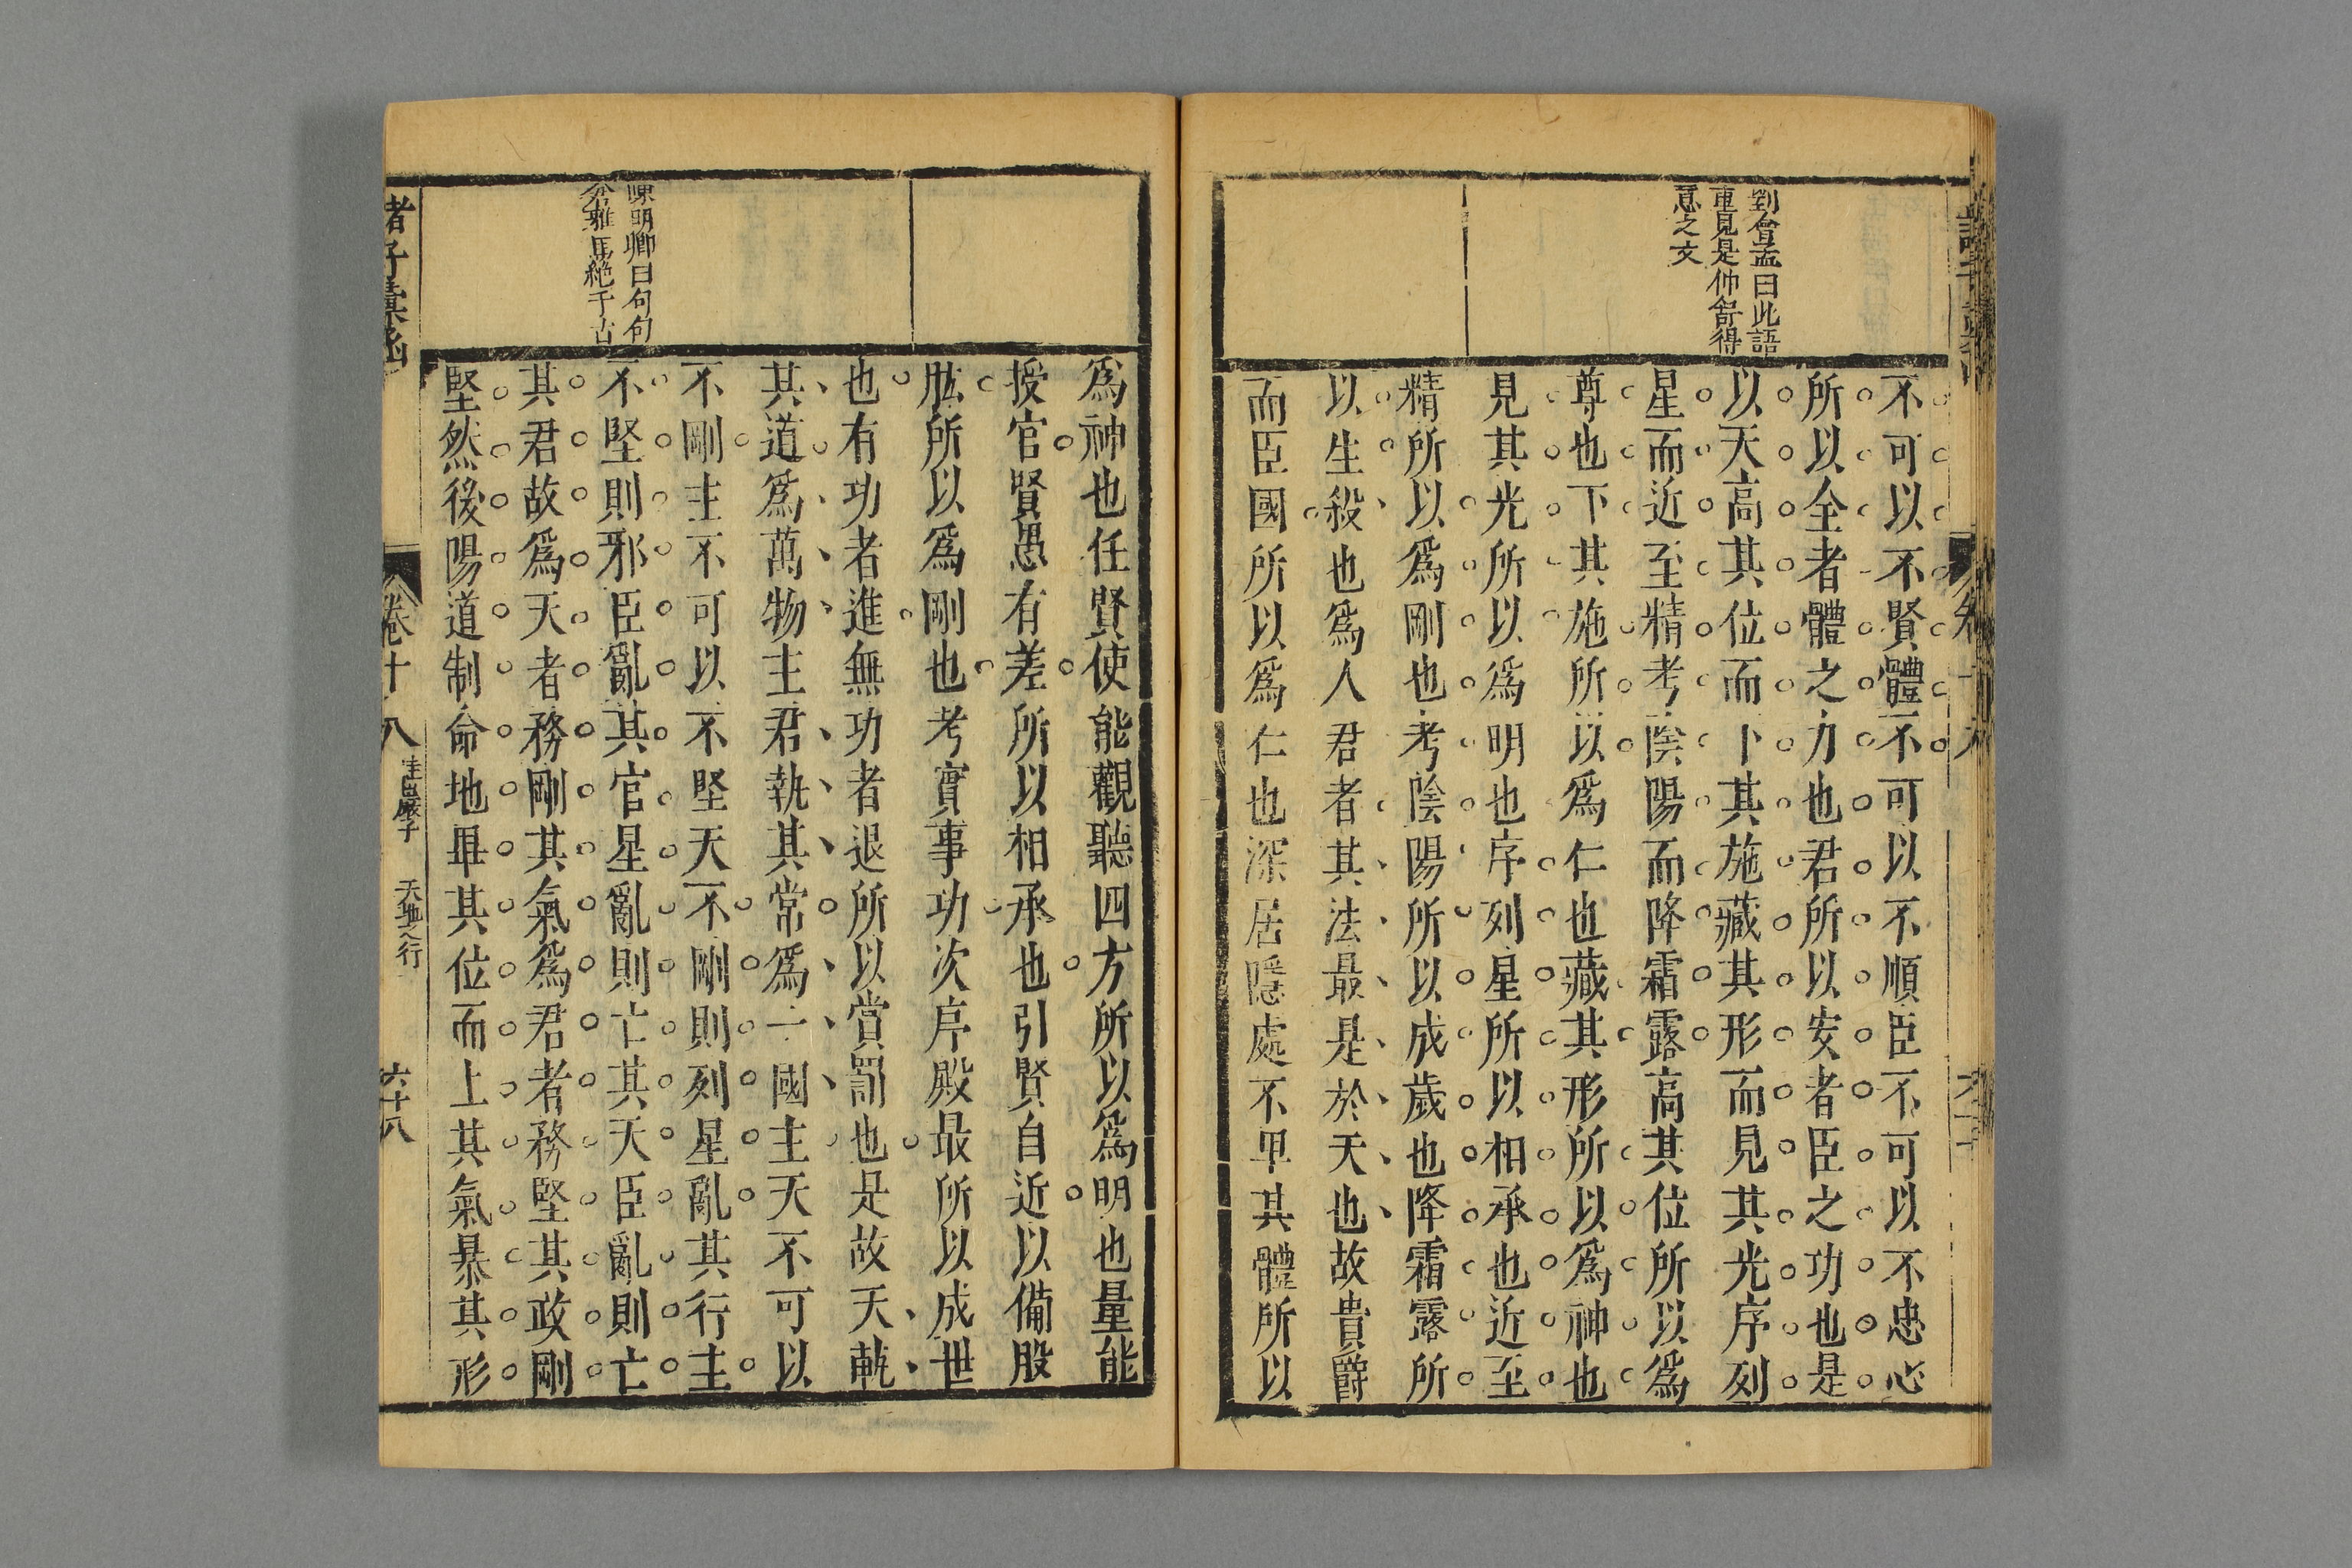 劉會孟曰此語
重見是仲舒得
意之文
不可以不賢體不可以不順臣不可以不忠心
所以全者體之力也君所以安者臣之功也是
以天高其位而下其施藏其形而見其光序列
星而近至精考陰陽而降霜露高其位所以為
尊也下其施所以為仁也藏其形所以為神也
見其光所以為明也序列星所以相承也近至
精所以為剛也考陰陽所以成歲也降霜露所
以生殺也為人君者其法最是於天也故貴爵
而臣國所以為仁也深居隱處不見其體所以
為神也任賢使能觀聽四方所以為明也量能
授官賢愚有差所以相承也引賢自近以備股
肱所以為剛也考實事功次序殿最所以成世
也有功者進無功者退所以賞罰也是故天執
其道為萬物主君執其常為一國主天不可以
不剛主不可以不堅天不剛則列星亂其行主
不堅則邪臣亂其官星亂則亡其天臣亂則亡
其君故為天者務剛其氣為君者務堅其政剛
堅然後陽道制命地卑其位而上其氣暴其形
陳明卿曰句句
介雅馬絶千古
諸子彙函
卷十八
桂巖子
天地之行
六十八